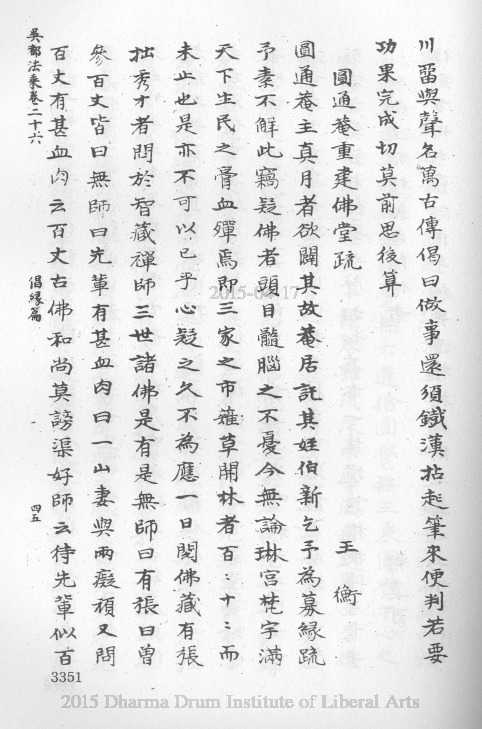 川留與聲名萬古傳偈曰做事還須鐵漢拈起筆來便判若要
功果完成切莫前思後算
圓通菴重建佛堂疏
王衡
圓通菴主真月者欲闢其故菴居託其姪伯新乞予為募緣疏
予素不解此竊疑佛者頭目髓腦之不憂今無論琳宮梵宇滿
天下生民之膏血殫焉即三家之市薙草開林者百〻十〻而
未止也是亦不可以已乎心疑之久不為應一日閱佛藏有張
拙秀才者問於智藏禪師三世諸佛是有是無師曰有張曰曾
參百丈皆曰無師曰先輩有甚血肉曰一山妻與兩癡頑又問
百丈有甚血肉云百丈古佛和尚莫謗渠好師云待先輩似百
吳都法乘卷二十六
倡緣篇
四五
3351
2015-04-17
2015 Dharma Drum Institute of Liberal Arts